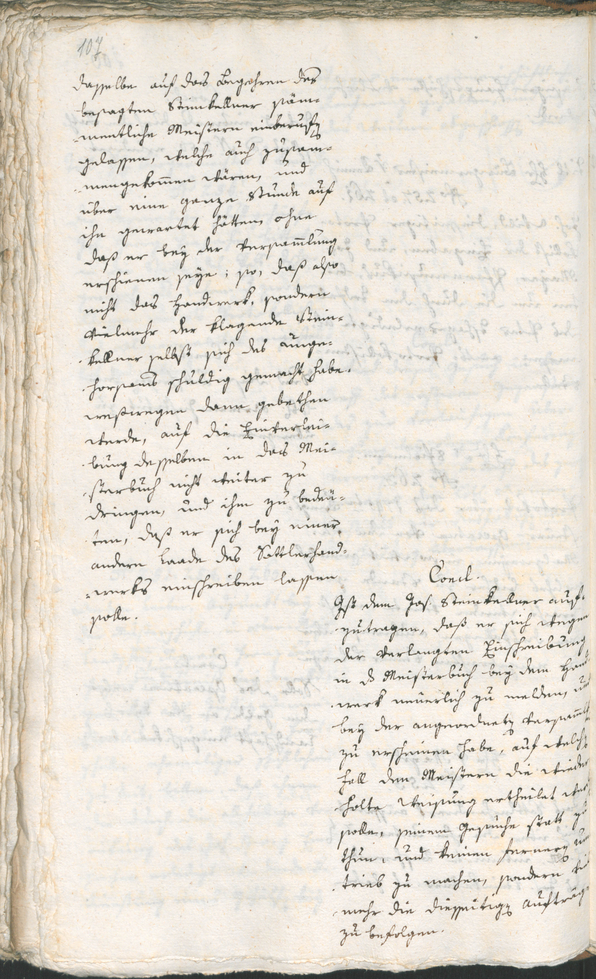 107
dasselbe auf das Begehren des
besagten Steinkellner säm¬
mentliche Meistern einberuffen
gelassen, welche auch zusam¬
mengekommen wären, und
über eine ganze Stunde auf
ihn gewartet hätten, ohne
daß er bey der Versammlung
erschienen seye; so, daß also
nicht das Handwerk, sondern
vielmehr der klagende Stein¬
kellner selbst sich des Unge¬
horsams schuldig gemacht habe.
weßwegen dann gebethen
werde, auf die Einverlei¬
bung desselben in das Mei¬
sterbuch nicht weiter zu
dringen, und ihm zu bedeü¬
ten, daß er sich bey einer
andern Laade des Sattlerhand¬
werks einschreiben lassen
solle.
Concl.
Ist dem Jos. Steinkellner auf¬
zutragen, daß er sich wegen
der verlangten Einschreibung
in ds Meisterbuch bey dem Hand
werk neüerlich zu melden, und
bey der angeordneten Versamml
zu erscheinen habe, auf welchen
Fall dem Meistern die wieder
holte Weisung ertheilet werden
solle, seinem Gesuche statt zu
thun, und keinen fernern Um
trieb zu machen, sondern viel
mehr die diesseitigen Aufträge
zu befolgen.